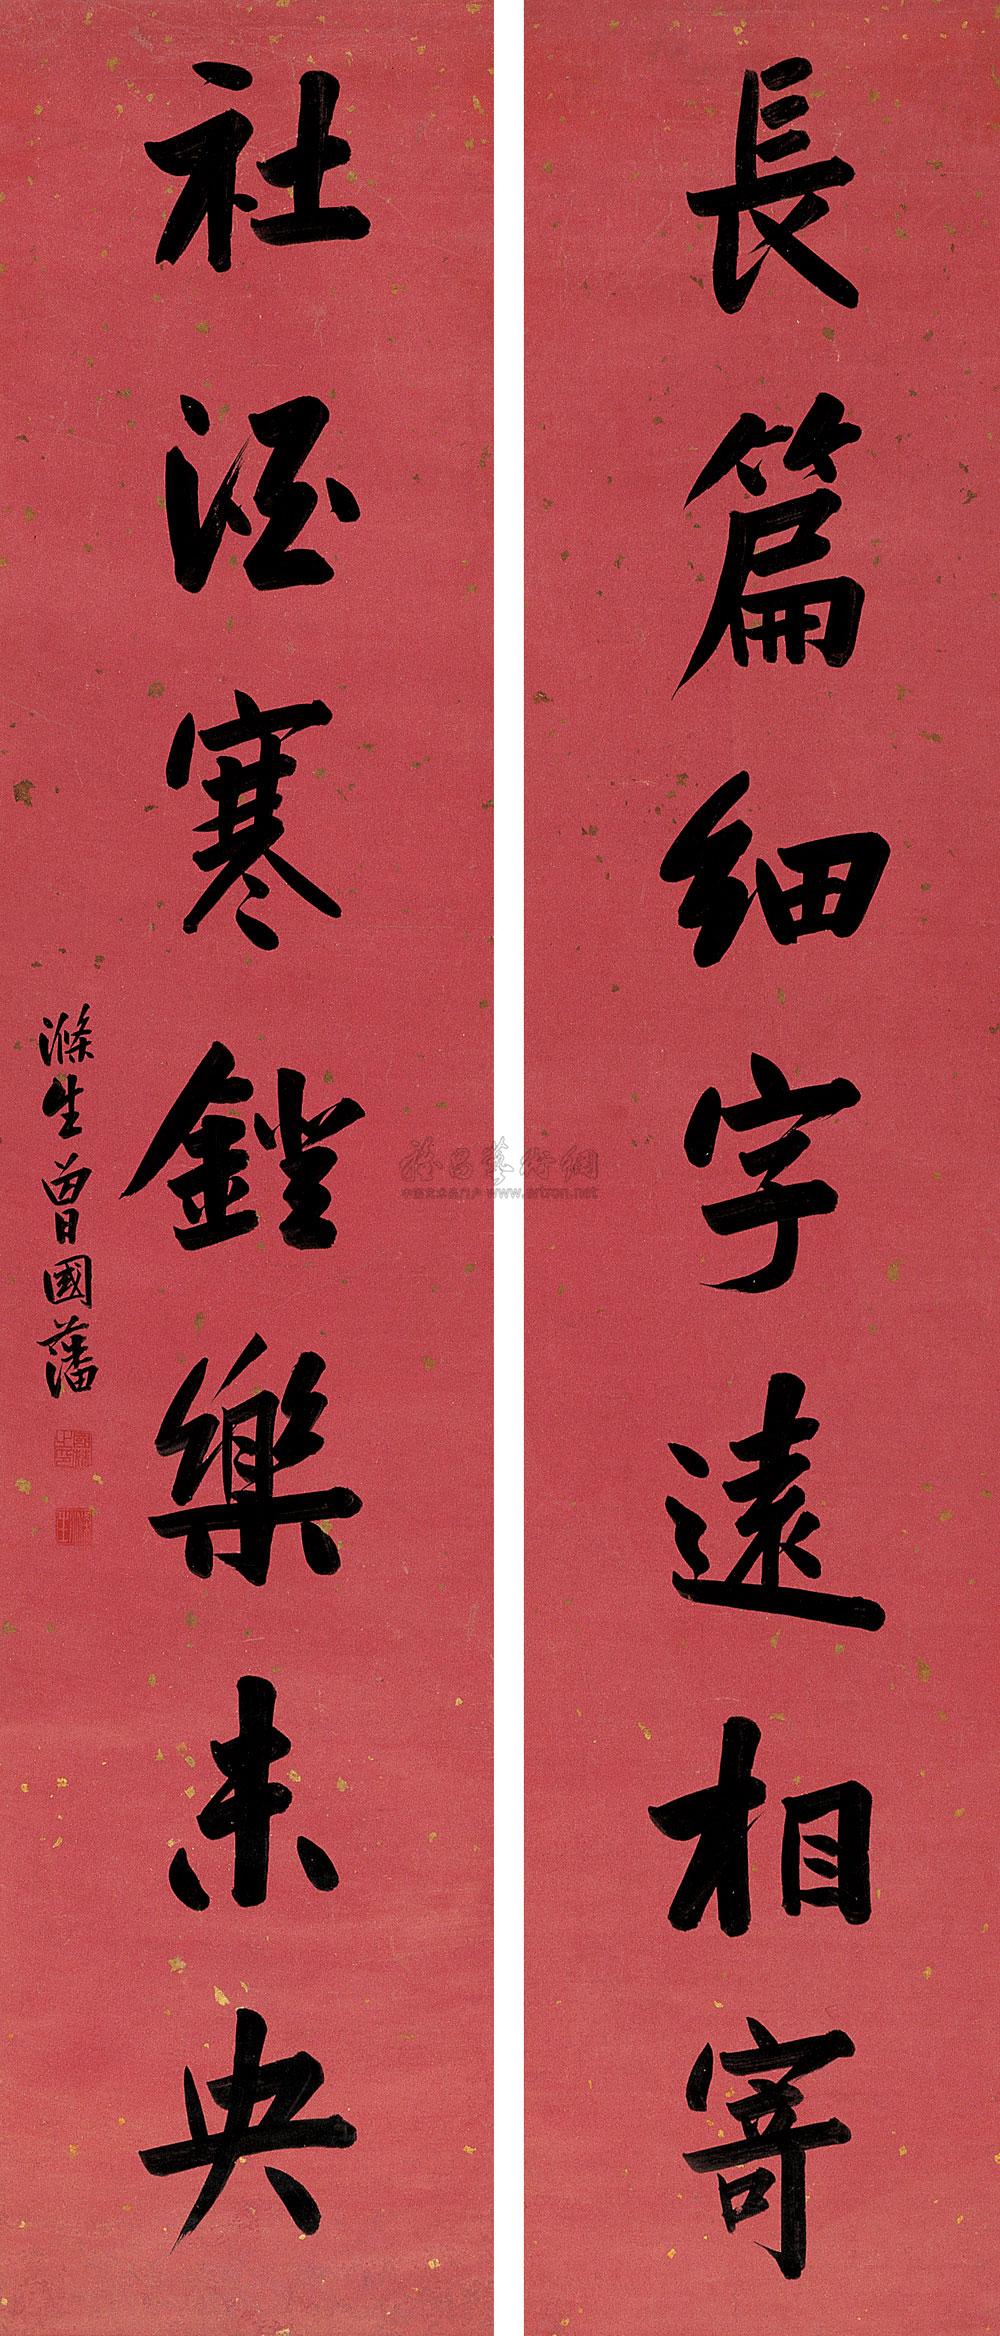 長篇細字遠相寄
社酒寒鐙樂未央
滌生曾國藩
雅昌藝術網
中国艺术品门户 www.artron.net